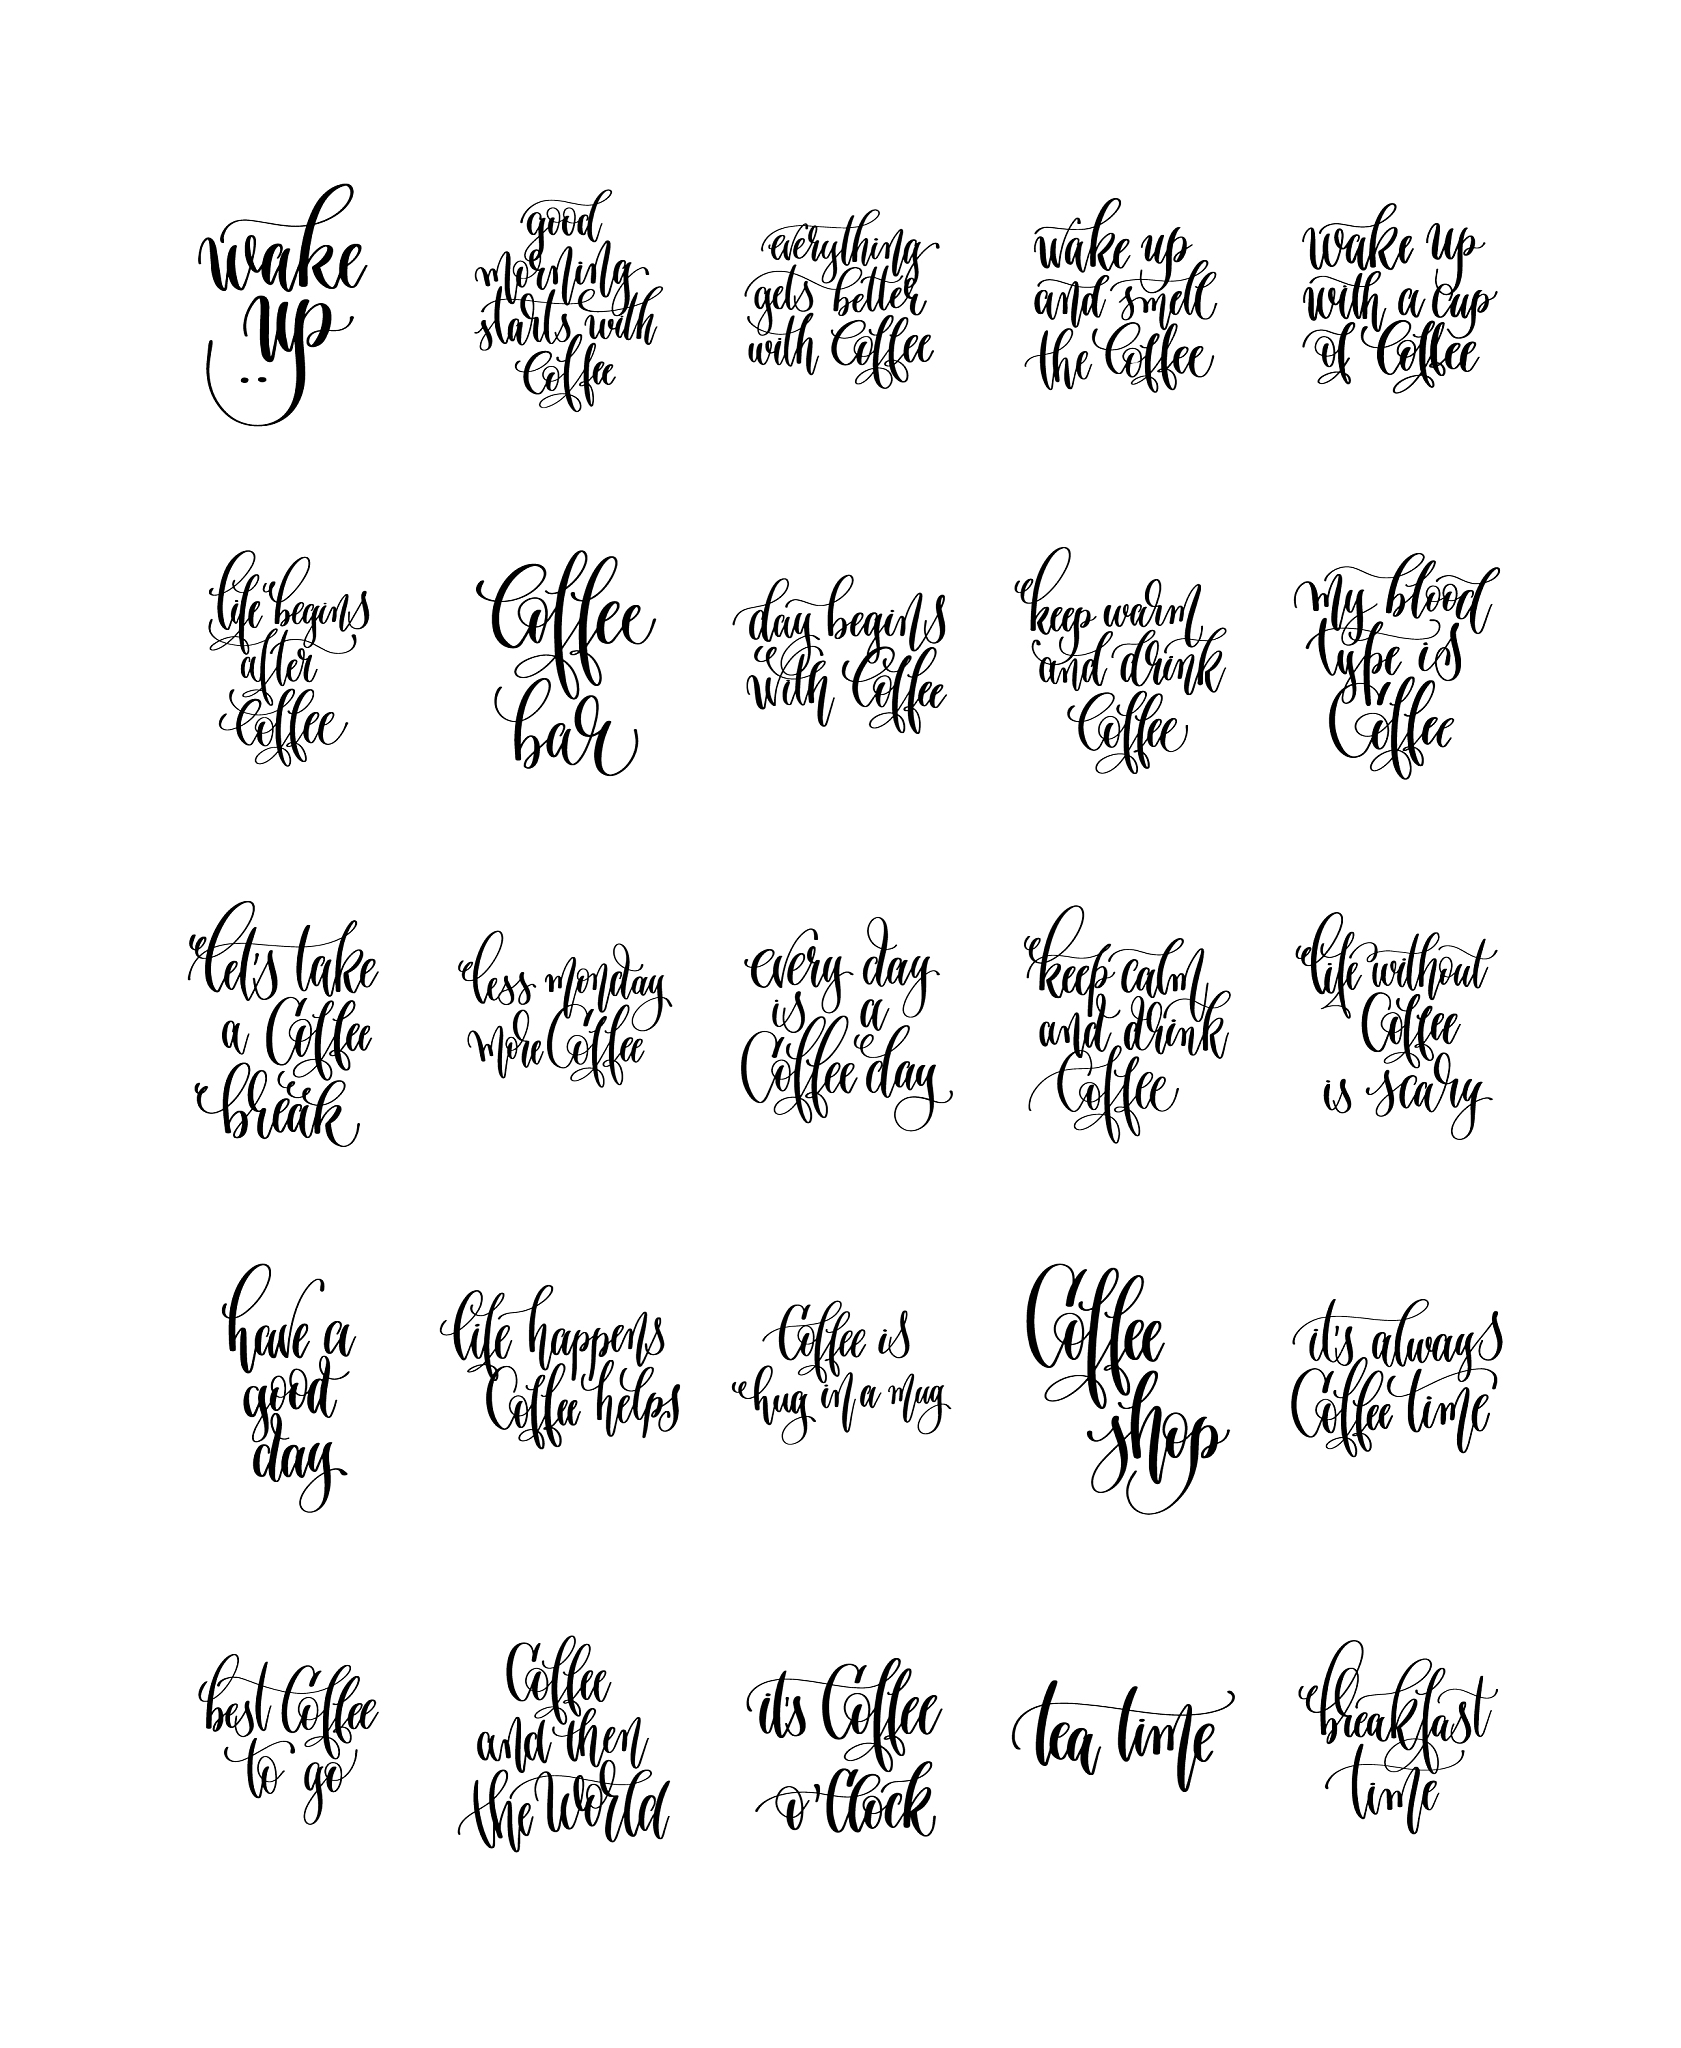 wake
up
good
morning
starts with
Coffee
everything
gets better
with Coffee
wake up
and smell
the Coffee
wake up
with a cup
of Coffee
life begins
after
Coffee
Coffee
bar
day begins
with Coffee
keep warm
and drink
Coffee
my blood
type is
Coffee
let's take
a Coffee
break
less monday
more Coffee
every day
is a
Coffee day
keep calm
and drink
Coffee
life without
Coffee
is scary
have a
good
day
life happens
Coffee helps
Coffee is
hug in a mug
Coffee
shop
it's always
Coffee time
best Coffee
to go
Coffee
and then
the World
it's Coffee
o'Clock
tea time
breakfast
time